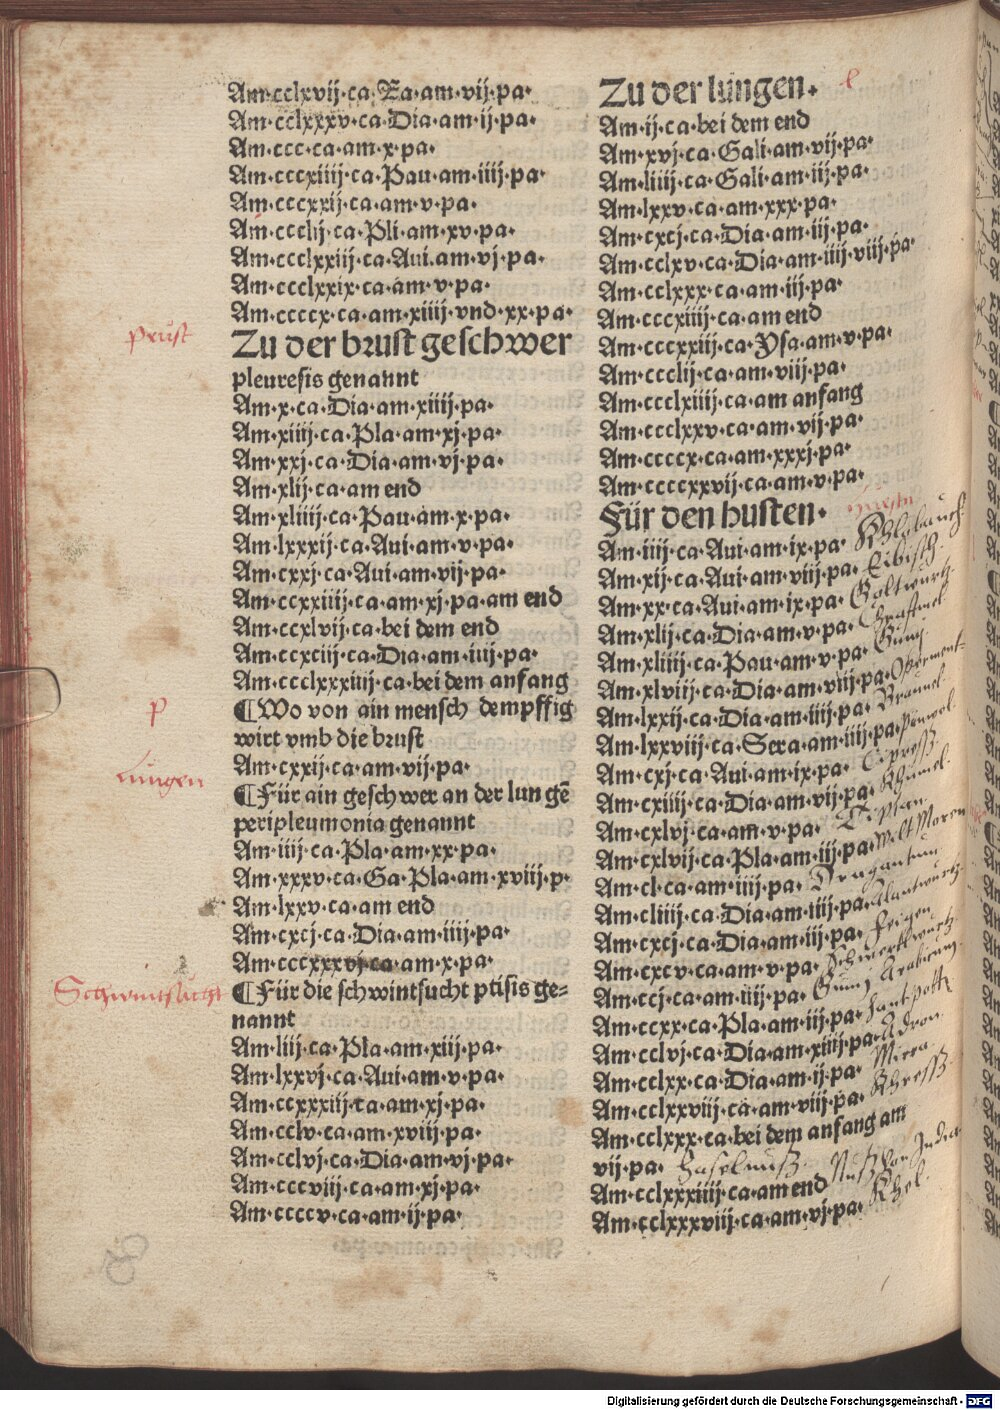 Am·cclxvij·ca·Ea·am·vij·pa·
Am·cclxxxv·ca·Dia·am·ij·pa·
Am·ccc·ca·am·x·pa·
Am·cccxiiij·ca·Pau·am·iiij·pa·
Am·cccxxij·ca·am·v·pa·
Am·ccclij·ca·Pli·am·xv·pa·
Am·ccclxxiij·ca·Aui·am·vj·pa·
Am·ccclxxix·ca·am·v·pa·
Am·ccccx·ca·am·xiiij·vnd·xx·pa·
prust
Zu der brust geschwer
pleuresis genannt
Am·x·ca·Dia·am·xiiij·pa·
Am·xiiij·ca·Pla·am·xj·pa·
Am·xxj·ca·Dia·am·vj·pa·
Am·xlij·ca·am end
Am·xliiij·ca·Pau·am·x·pa·
Am·lxxxij·ca·Aui·am·v·pa·
Am·cxxj·ca·Aui·am·vij·pa·
Am·ccxxiiij·ca·am·xj·pa·am end
Am·ccxlvij·ca·bei dem end
Am·ccxciij·ca·Dia·am·iiij·pa·
Am·ccclxxxiiij·ca·bei dem anfang
p
¶Wo von ain mensch dempffig
wirt vmb die brust
Am·cxxij·ca·am·vij·pa·
lungen
¶Für ain geschwer an der lungē
peripleumonia genannt
Am·iiij·ca·Pla·am·xx·pa·
Am·xxxv·ca·Ga·Pla·am·xviij·p·
Am·lxxv·ca·am end
Am·cxcj·ca·Dia·am·iiij·pa·
Am·cccxxxvj·ca·am·x·pa·
Schwintsucht
¶Für die schwintsucht ptisis ge=
nannt
Am·liij·ca·Pla·am·xiij·pa·
Am·lxxvj·ca·Aui·am·v·pa·
Am·ccxxxiiij·ca·am·xj·pa·
Am·cclv·ca·am·xviij·pa·
Am·cclvj·ca·Dia·am·vj·pa·
Am·cccviij·ca·am·xj·pa·
Am·ccccv·ca·am·ij·pa·
Zu der lungen· l
Am·ij·ca·bei dem end
Am·xvj·ca·Gali·am·vij·pa·
Am·liiij·ca·Gali·am·iij·pa·
Am·lxxv·ca·am·xxx·pa·
Am·cxcj·ca·Dia·am·iij·pa·
Am·cclxv·ca·Dia·am·iiij·viij·pa·
Am·cclxxx·ca·am·iij·pa·
Am·cccxiiij·ca·am end
Am·cccxxiij·ca·Ysa·am·v·pa·
Am·ccclij·ca·am·viij·pa·
Am·ccclxiiij·ca·am anfang
Am·ccclxxv·ca·am·vij·pa·
Am·ccccx·ca·am·xxxj·pa·
Am·ccccxxvij·ca·am·v·pa·
Für den husten·
Am·iij·ca·Aui·am·ix·pa· Khlobauch
Am·xij·ca·Aui·am·viij·pa· Eibisch
Am·xx·ca·Aui·am·ix·pa· Goltwurtz
Am·xlij·ca·Dia·am·v·pa·
Am·xliiij·ca·Pau·am·v·pa· Gumj
Am·xlviij·ca·Dia·am·viij·pa·
Am·lxxij·ca·Dia·am·iiij·pa·
Am·lxxviij·ca·Sera·am·iiij·pa·
Am·cxj·ca·Aui·am·ix·pa· Cipreß
Am·cxiiij·ca·Dia·am·vij·pa· Khumel
Am·cxlvj·ca·am·v·pa·
Am·cxlvij·ca·Pla·am·iij·pa·
Am·cl·ca·am·iiij·pa· Dragantum
Am·cliiij·ca·Dia·am·iiij·pa· Alantwurtz
Am·cxcj·ca·Dia·am·iij·pa· Feigen
Am·cxcv·ca·am·v·pa· Schwertlwurtz
Am·ccj·ca·am·iiij·pa· Gumj Arabicum
Am·ccxx·ca·Pla·am·iij·pa·
Am·cclvj·ca·Dia·am·xiiij·pa· Adron
Am·cclxx·ca·Dia·am·ij·pa· Mirra
Am·cclxxviij·ca·am·viij·pa· Khreß
Am·cclxxx·ca·bei dem anfang am
vij·pa· Haselnuß
Am·cclxxxiiij·ca·am end Nuß von India
Am·cclxxxviij·ca·am·vj·pa· Khol
Digitalisierung gefördert durch die Deutsche Forschungsgemeinschaft - DFG